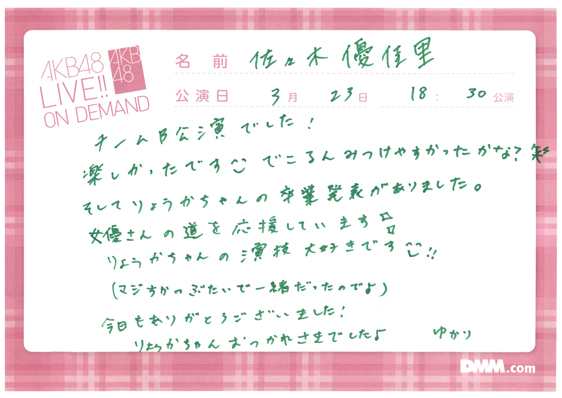 AKB48
LIVE!!
ON DEMAND
AKB
48
名前 佐々木優佳里
公演日 3月 23日 18: 30公演
チームB公演でした!
楽しかったです でこるんみつけやすかったかな?笑
そしてりょうかちゃんの卒業発表がありました。
女優さんの道を応援しています☆
りょうかちゃんの演技 大好きです !!
(マジすかつぶたいで一緒だったのでよ)
今日もありがとうございました!
りょうかちゃんおつかれさまでした♪ ゆかり
DMM.com